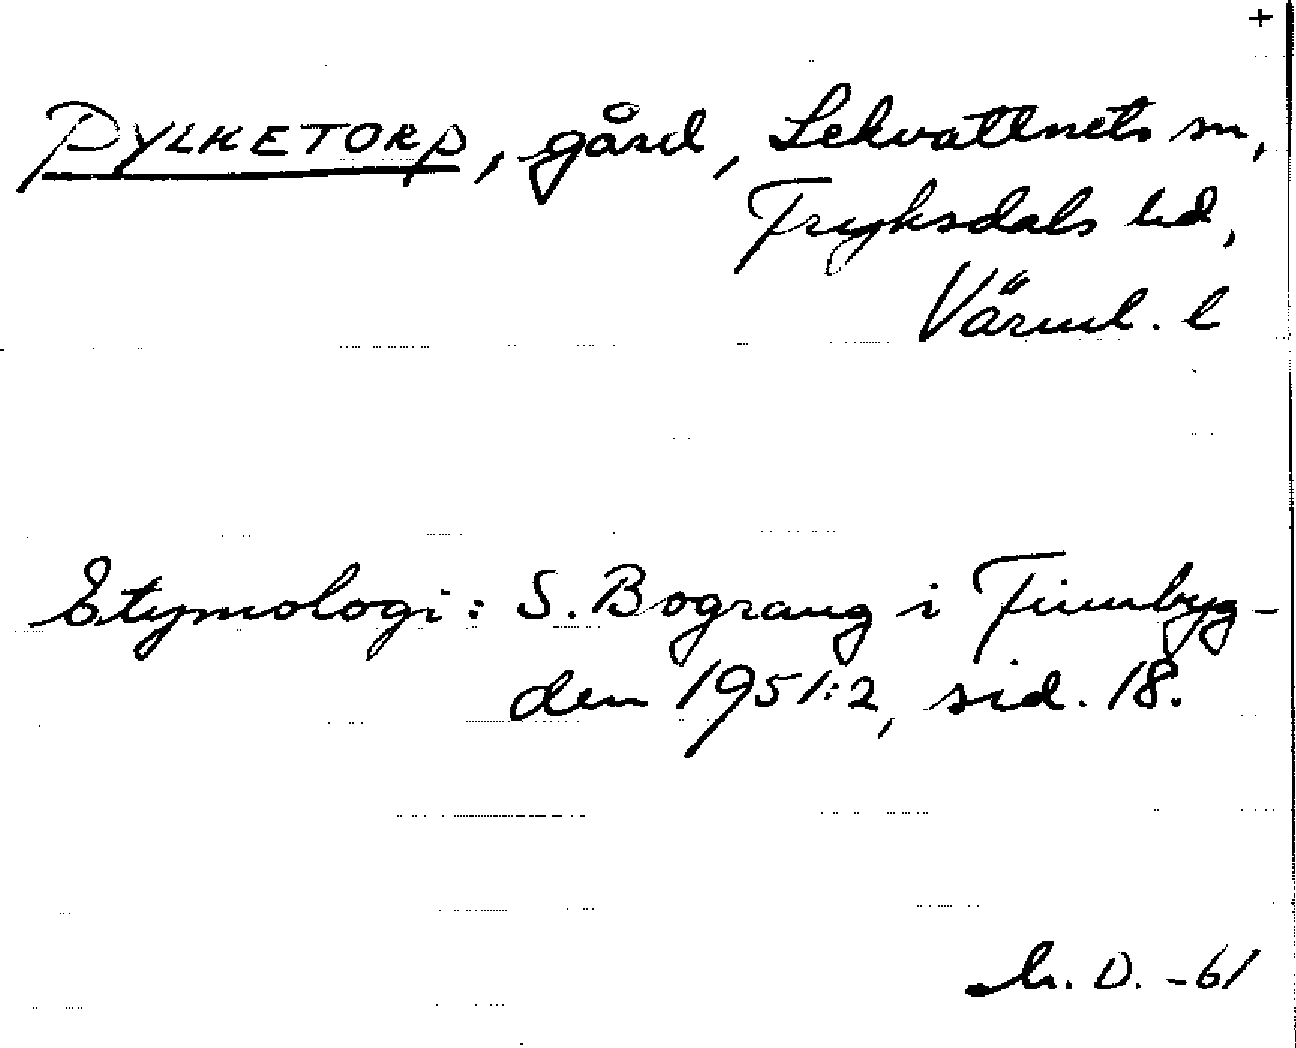 +
PYLKETORP, gård, Lekvattnets sn,
Fryksdals hd,
Värml. l
Etymologi: S. Bograng i Finnbyg-
den 1951:2, sid. 18.
D. -61